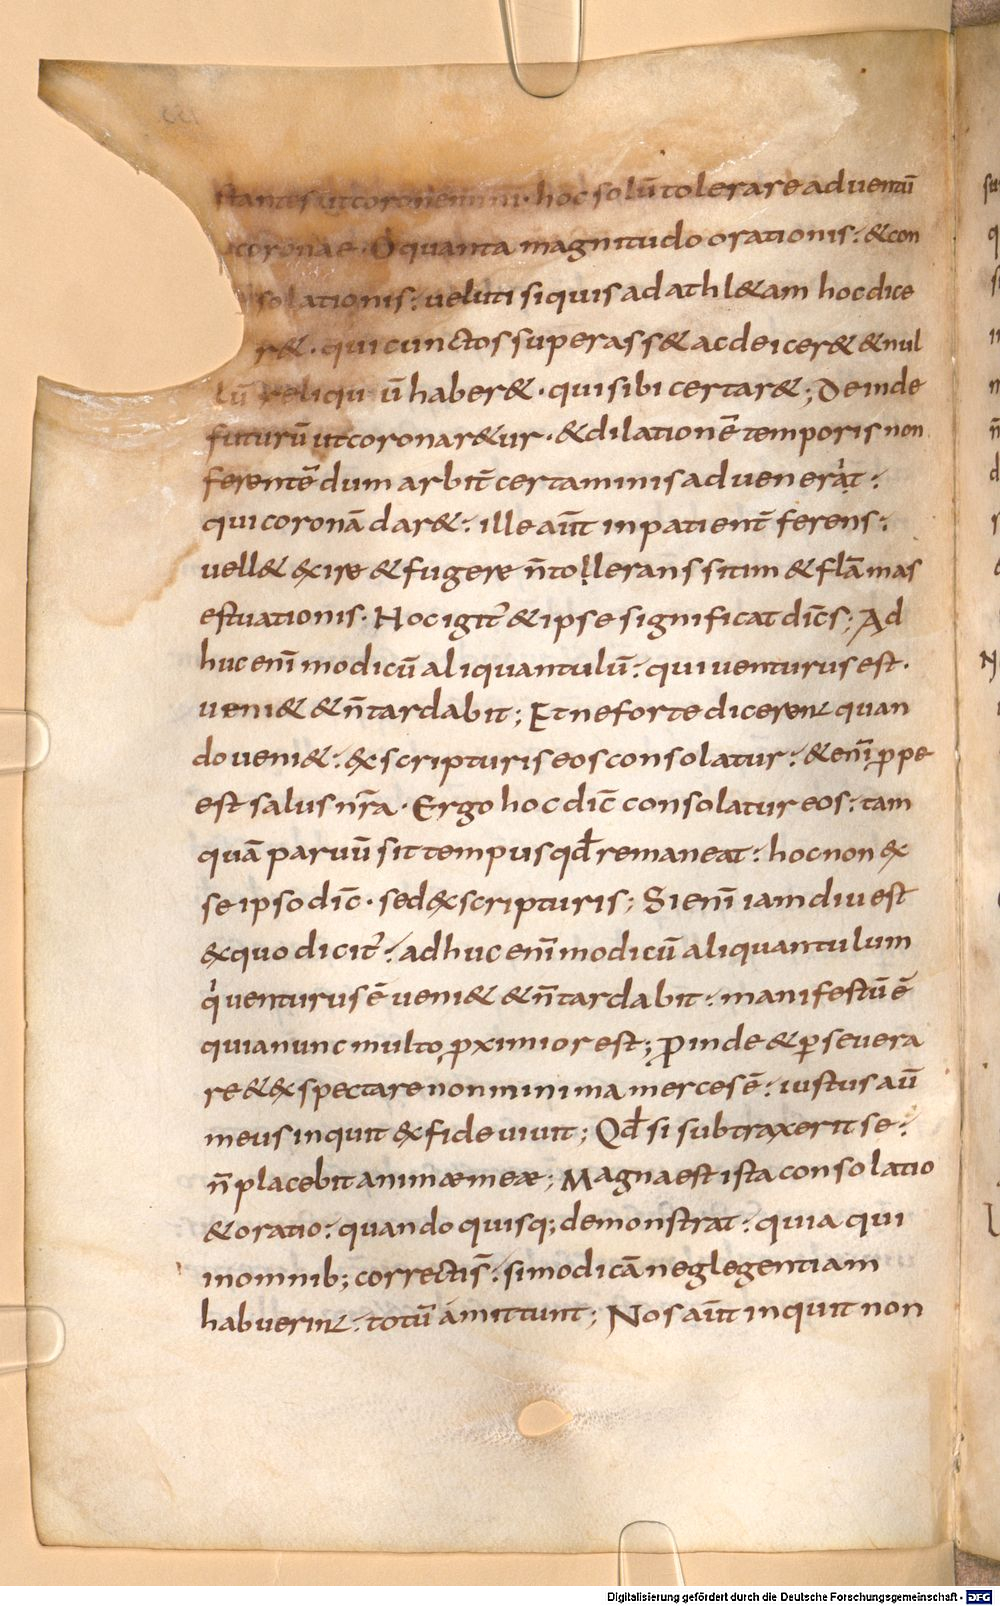 stantes ut coronemini · hoc solū tolerare adventū
coronae · O quanta magnitudo orationis : & con
solationis : veluti siquis ad athl&am hoc dice
r& · qui cunctos superass& ac deicer& & nul
lū reliquū haber& · qui sibi certar& ; Deinde
futurū ut coronar&ur · & dilationē temporis non
ferentē dum arbit̄ certaminis advenerat :
qui coronā dar& : ille aūt inpatient̄ ferens :
vell& exire & fugere n̄ tollerans sitim & flāmas
estuationis · Hoc igit̄ & ipse significat dic̄s ; Ad
huc eni̅ modicū aliquantulū : qui venturus est ·
veni& & n̄ tardabit ; Et ne forte dicerent quan
do veni& : ex scripturis eos consolatur : & eni̅ ꝓpe
est salus nr̄a · Ergo hoc dic̄ consolatur eos : tam
quā parvū sit tempus qd̄ remaneat : hoc non ex
se ipso dic̄ · sed ex scripturis ; Si eni̅ iam diu est
ex quo dicit̄ : adhuc eni̅ modicū aliquantulum
qi venturus ē veni& & n̄ tardabit : manifestū ē
quia nunc multo ꝓximior est ; ꝓinde & ꝑsevera
re & exspectare non minima merces ē : iustus aū
meus inquit ex fide vivit ; Qd̄ si subtraxerit se :
n̄ placebit animæ meæ ; Magna est ista consolatio
& oratio : quando quisq; demonstrat : quia qui
in omnib; correctis̄ : si modicā neglegentiam
habuerint : totū amittunt ; Nos aūt inquit non
Digitalisierung gefördert durch die Deutsche Forschungsgemeinschaft - DFG